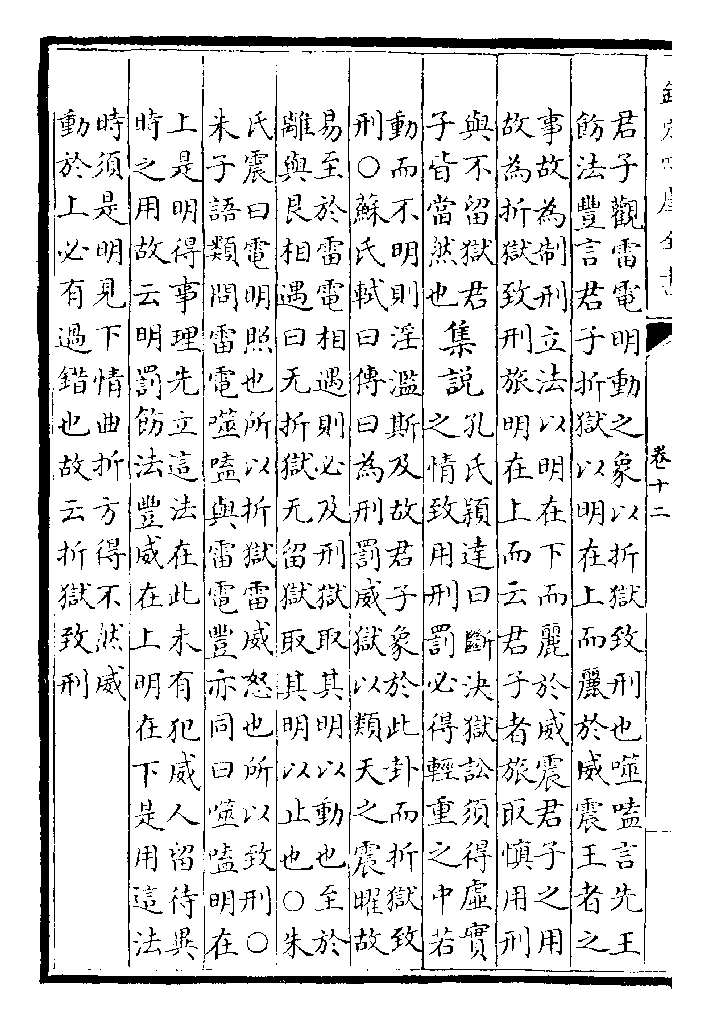 欽定四庫全書
卷十二
君子觀雷電明動之象以折獄致刑也噬嗑言先王
飭法豐言君子折獄以明在上而麗於威震王者之
事故為制刑立法以明在下而麗於威震君子之用
故為折獄致刑旅明在上而云君子者旅取慎用刑
與不留獄君
子皆當然也
集說
孔氏穎達曰斷決獄訟須得虛實
之情致用刑罰必得輕重之中若
動而不明則淫濫斯及故君子象於此卦而折獄致
刑○蘇氏軾曰傳曰為刑罰威獄以類天之震曜故
易至於雷電相遇則必及刑獄取其明以動也至於
離與艮相遇曰无折獄无留獄取其明以止也○朱
氏震曰電明照也所以折獄雷威怒也所以致刑○
朱子語類問雷電噬嗑與雷電豐亦同曰噬嗑明在
上是明得事理先立這法在此未有犯威人留待異
時之用故云明罰飭法豐威在上明在下是用這法
時須是明見下情曲折方得不然威
動於上必有過錯也故云折獄致刑